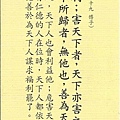 十九 傅子)
;害天下者,天下亦
所歸者,無他也,善為天
,天下人也會利益他;危害
仁德的人在位時,天下人都
善於為天下人謀求福利罷了。